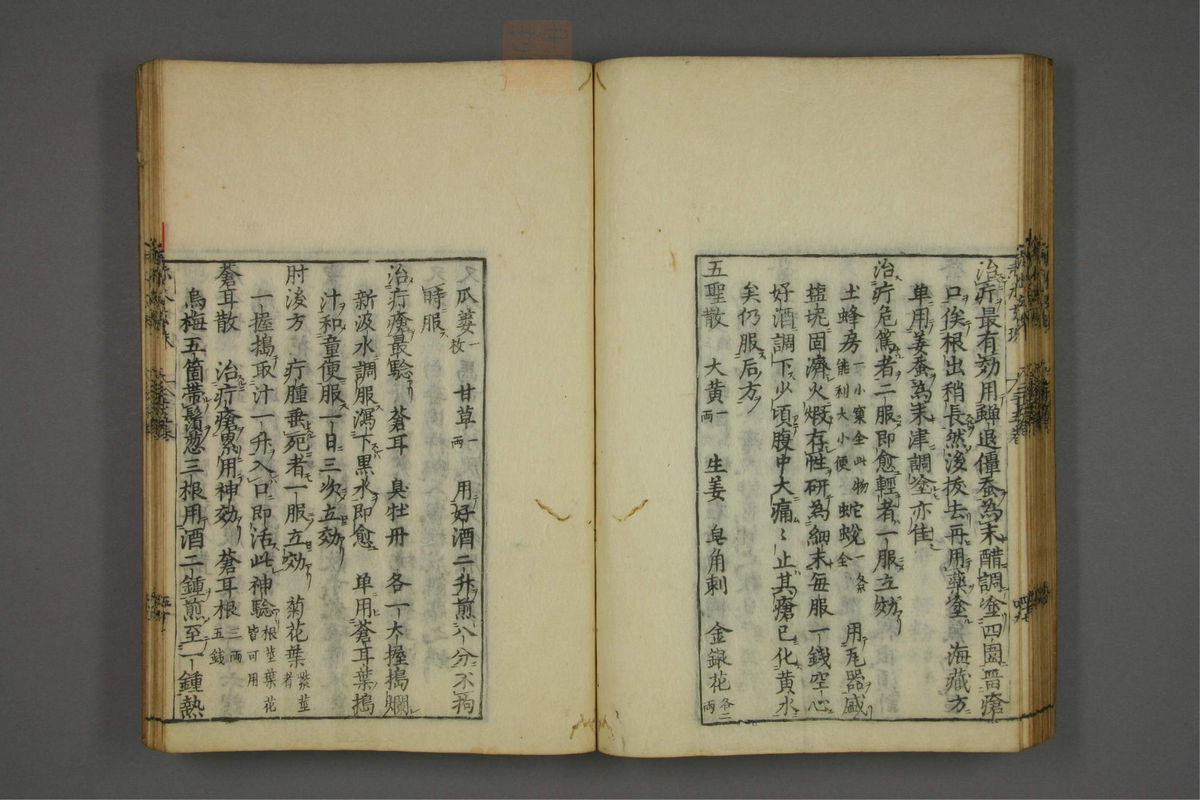 治疔最有効用蟬退僵蚕為末醋調塗四圍畱瘡
口俟根出稍長然後抜去再用藥塗 海藏方
単用姜蚕為末津調塗亦佳
治疔危篤者二服即愈輕者一服立効
土蜂房 一小窠全此物能利大小便 蛇蛻 一条全 用瓦器盛
塩坭固濟火煆存性研為細末毎服一錢空心
好酒調下少頃腹中大痛〻止其瘡已化黄水
矣仍服后方
五聖散 大黄 一両 生姜 皂角刺 金銀花 各二両
又瓜蔞 一枚 甘草 一両 用好酒二升煎八分不拘
時服
治疔瘡最驗 蒼耳 臭牡丹 各一大握搗爛
新汲水調服瀉下黒水即愈 単用蒼耳葉搗
汁和童便服一日三次立効
肘後方 疔腫垂死者一服立効 菊花葉 紫莖者
一握搗取汁一升入口即活此神驗 根莖葉花皆可用
蒼耳散 治疔瘡累用神効 蒼耳根 三両五錢
烏梅五箇帯鬚葱三根用酒二鍾煎至一鍾熱